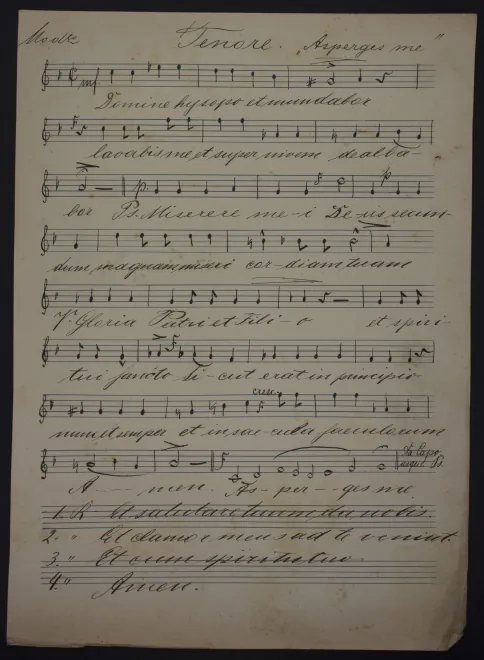 Tenore. "Asperges me"
mf
Domine hysopo et mundabor
lavabis me et super nivem dealba-
p.
p
bor Ps. Miserere me-i De-us secun-
dum magnam miseri cor-diam tuam
Gloria Patri et Fili-o et spiri-
tui sancto Si-cut erat in principio
cresc.
nunc et semper et in sae-cula saeculorum
A---men. As-per--ges me
1. R Et salutare tuum da nobis
2. " Et clamor meus ad te veniat.
3. " Et cum spiritu tuo
4. " Amen.